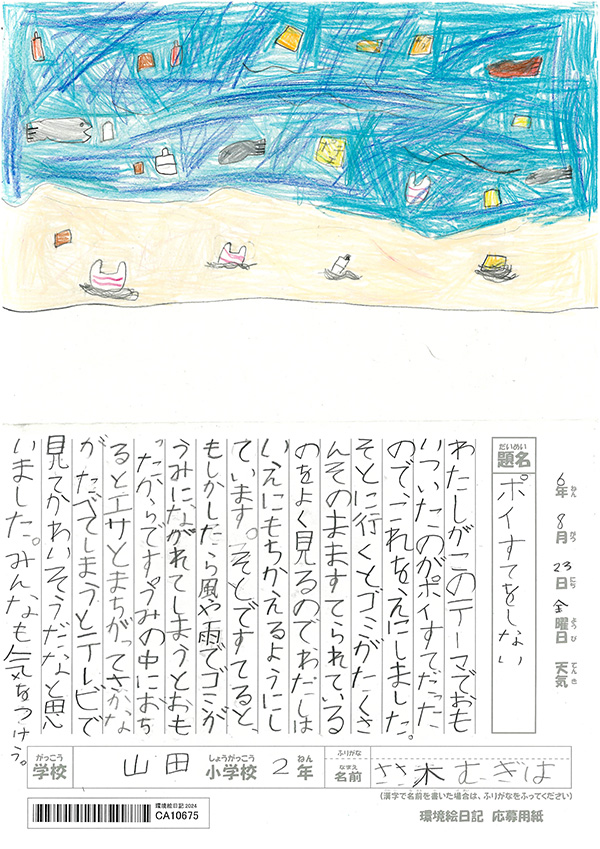 6年 8月 23日 金曜日 天気
ねん がつ にち ようび てんき
だいめい
題名
ポイすてをしない
わたしがこのテーマでおも
いついたのがポイすてだった
ので、これをえにしました。
そとに行くとゴミがたくさ
んそのまますてられている
のをよく見るのでわたしは
いえにもちかえるようにし
ています。そとですてると、
もしかしたら風や雨でゴミが
うみにながれてしまうとおも
ったからです。うみの中におち
るとエサとまちがってさかな
がたべてしまうとテレビで
見てかわいそうだなと思
いました。みんなも気をつけよう。
がっこう しょうがっこう ねん
学校 山田 小学校 2年
ふりがな
なまえ
名前 ささ木 むぎは
(漢字で名前を書いた場合は、ふりがなをふってください)
環境絵日記2024
CA10675
環境絵日記 応募用紙